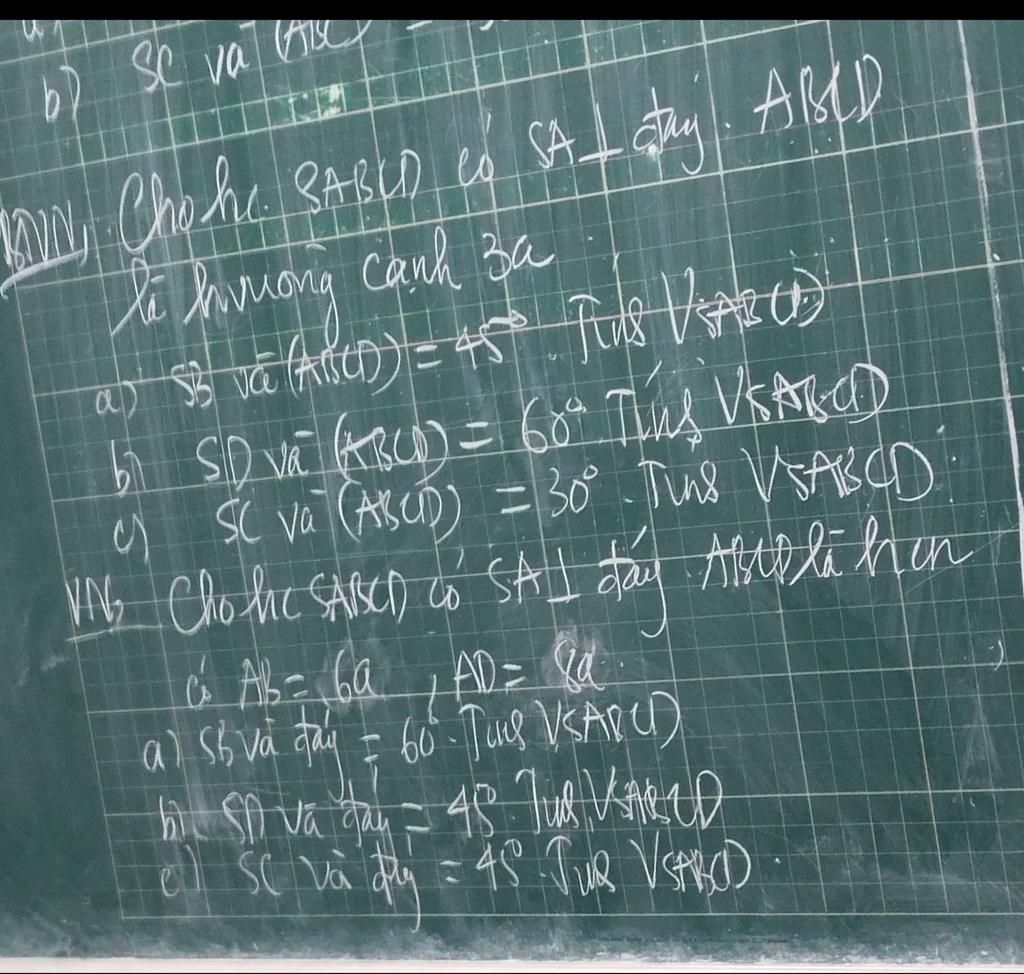 b) SC và (ABC) =
BVN, Cho hc. SABCD có SA ⊥ đáy. ABCD
là hvuông cạnh 3a
a) SB và (ABCD) = 45°. Tính VSABCD
b) SD và (ABCD) = 60°. Tính VSABCD
c) SC và (ABCD) = 30°. Tính VSABCD.
VN, Cho hc SABCD có SA ⊥ đáy ABCD là hcn
có AB = 6a, AD = 8a
a) SB và đáy = 60°. Tính VSABCD
b) SD và đáy = 45°. Tính VSABCD
c) SC và đáy = 45°. Tính VSABCD.